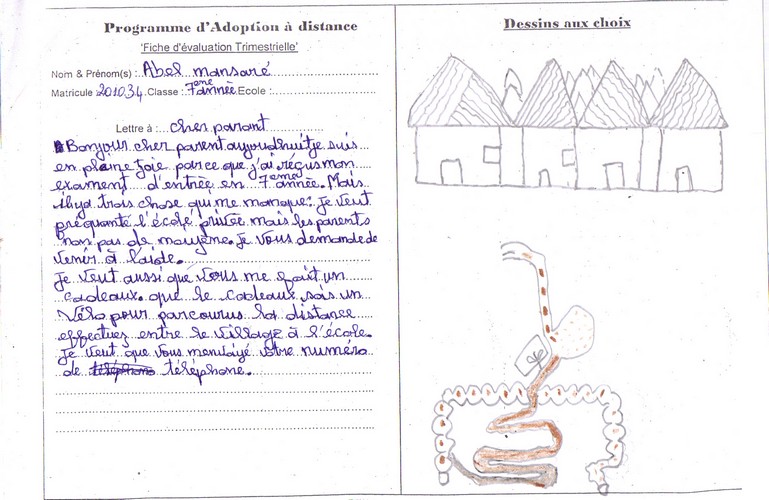 Programme d'Adoption à distance
'Fiche d'évaluation Trimestrielle'
Nom & Prénom(s) : Abel mansaré
Matricule : 201034 Classe : 7eme année Ecole :
Lettre à : cher parant
Bonjour cher parent auyoudhuit je suis
en plaine joie parce que j'ai réçus mon
exament d'entrée en 7eme année. Mais
ilya trois chose qui me manque. Je veut
préquanté l'école privée mais les parents
non pas de moyene. Je vous demande de
venir à l'aide.
Je veut aussi que vous me fait un
cadeaux que le cadeaux sois un
Vélo pour parcourus la distance
effectuez entre le village à l'école.
Je veut que vous menvoyé votre numéro
de téléphone.
Dessins aux choix